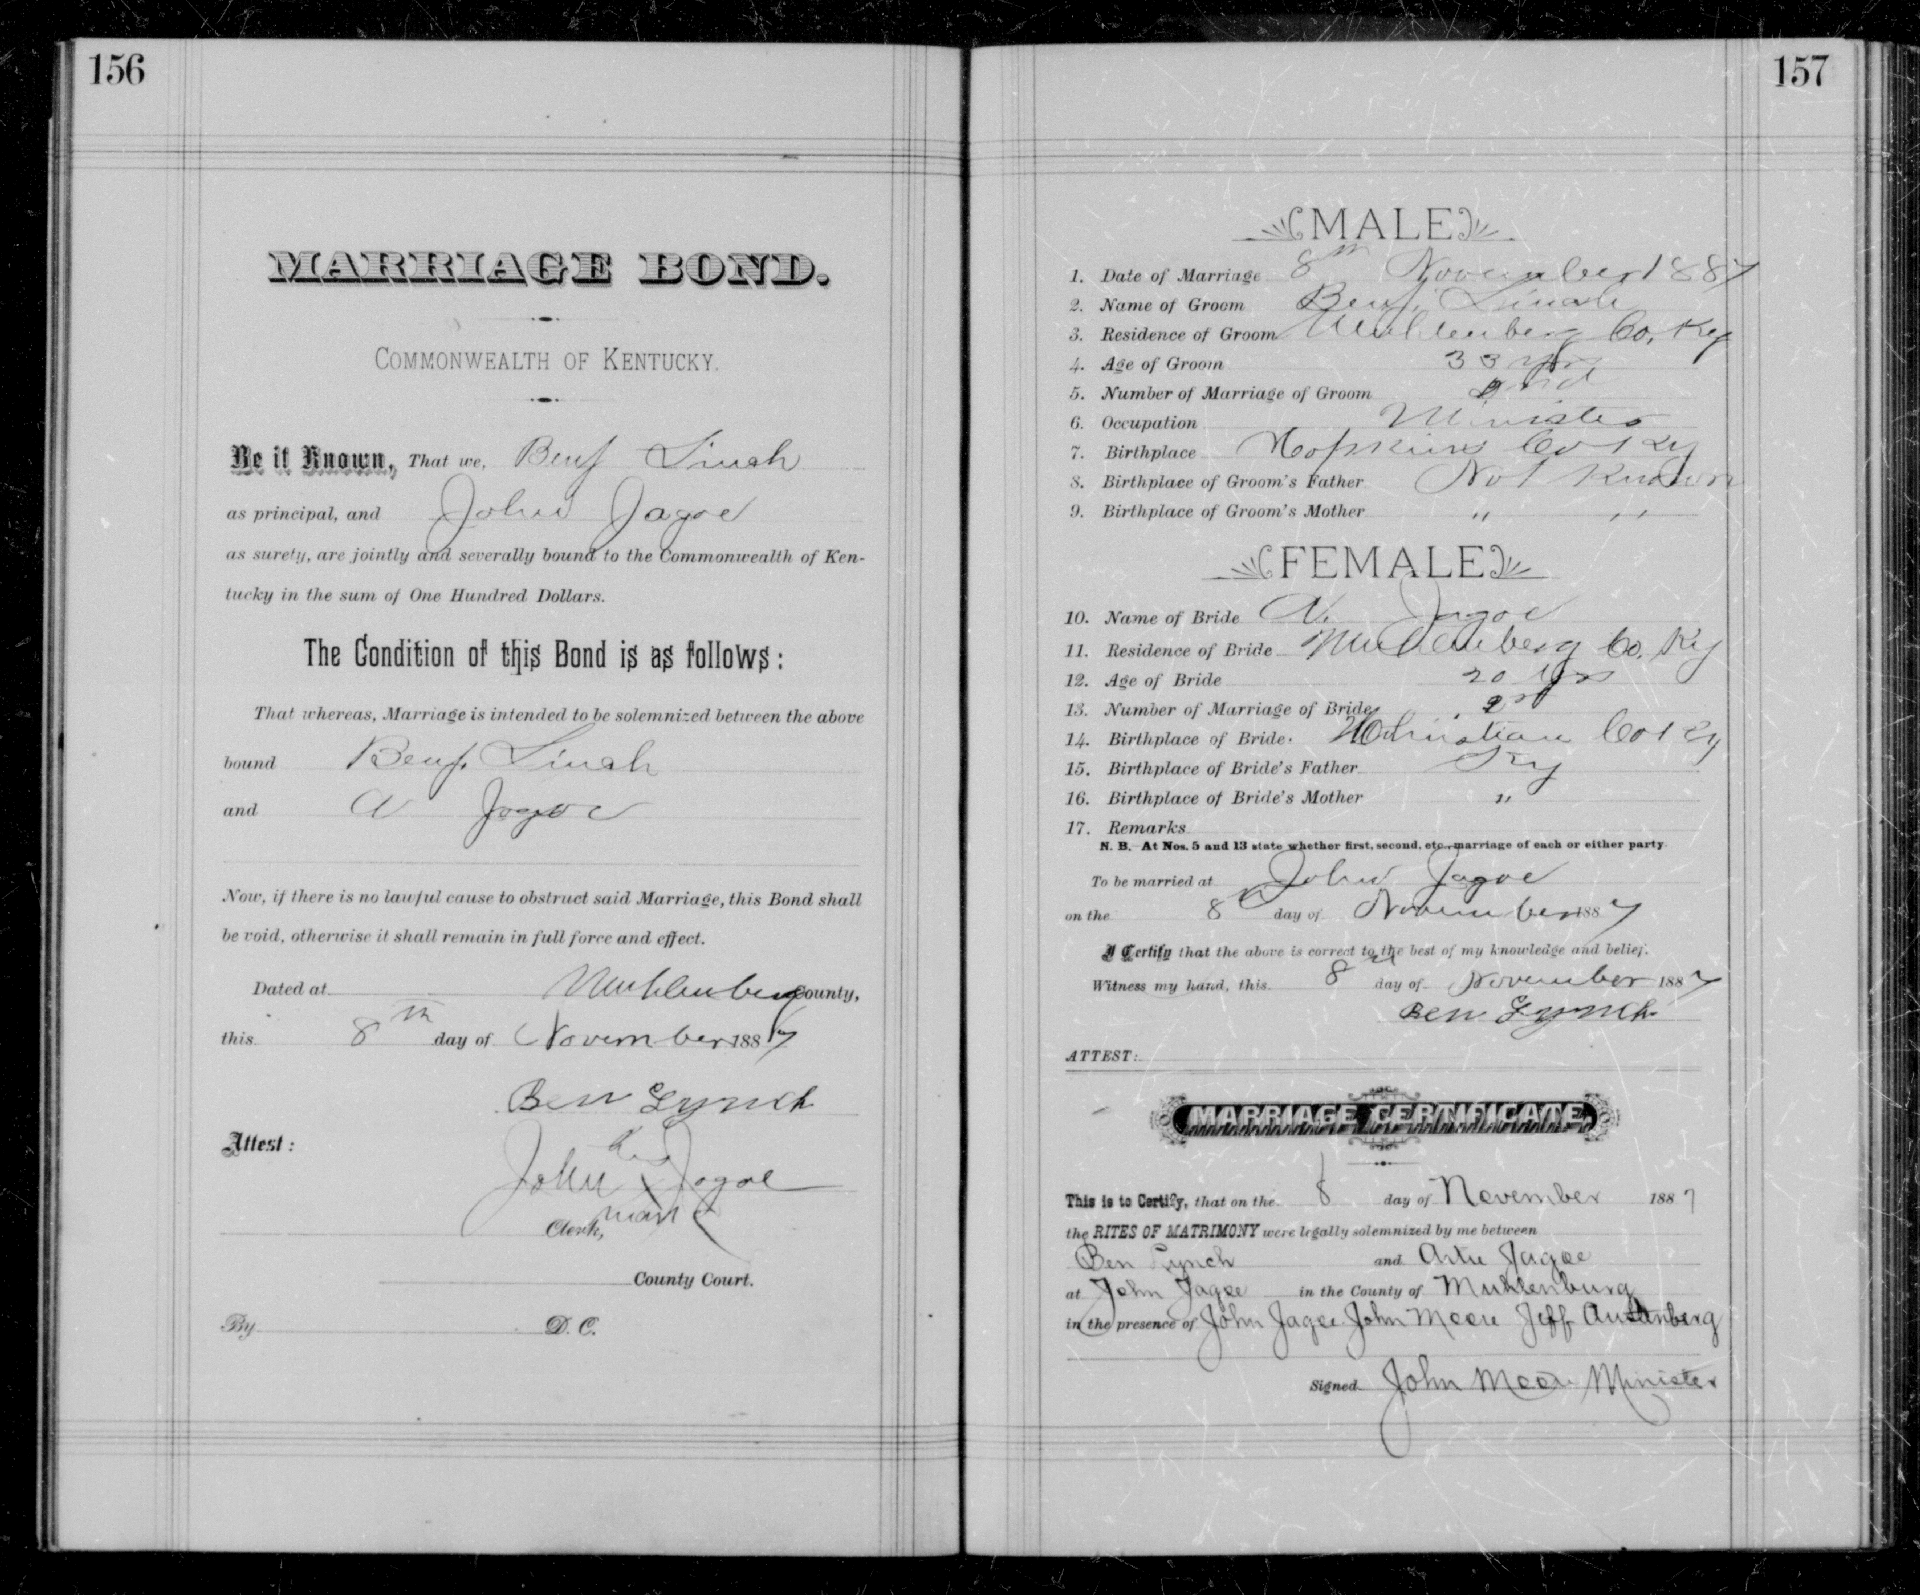 156
MARRIAGE BOND.
COMMONWEALTH OF KENTUCKY.
Be it Known, That we, Benj Linch
as principal, and John Jagoe
as surety, are jointly and severally bound to the Commonwealth of Ken-
tucky in the sum of One Hundred Dollars.
The Condition of this Bond is as follows:
That whereas, Marriage is intended to be solemnized between the above
bound Benj. Linch
and A Jagoe
Now, if there is no lawful cause to obstruct said Marriage, this Bond shall
be void, otherwise it shall remain in full force and effect.
Dated at Muhlenberg County,
this 8th day of November 1887
Ben Lynch
Attest:
his
John X Jagoe
mark
Clerk,
County Court.
By D. C.
157
MALE
1. Date of Marriage 8th November 1887
2. Name of Groom Benj. Linch
3. Residence of Groom Muhlenberg Co, Ky
4. Age of Groom 33 yrs
5. Number of Marriage of Groom 2nd
6. Occupation Minister
7. Birthplace Hopkins Co Ky
8. Birthplace of Groom's Father Not Known
9. Birthplace of Groom's Mother " "
FEMALE
10. Name of Bride A. Jagoe
11. Residence of Bride Muhlenberg Co. Ky
12. Age of Bride 20 yrs
13. Number of Marriage of Bride
14. Birthplace of Bride. Christian Co Ky
15. Birthplace of Bride's Father Ky
16. Birthplace of Bride's Mother "
17. Remarks
N. B.—At Nos. 5 and 13 state whether first, second, etc., marriage of each or either party.
To be married at John Jagoe
on the 8th day of November 1887
I Certify that the above is correct to the best of my knowledge and belief.
Witness my hand, this 8th day of November 1887
Ben Lynch
ATTEST:
MARRIAGE CERTIFICATE.
This is to Certify, that on the 8 day of November 1887
the RITES OF MATRIMONY were legally solemnized by me between
Ben Lynch and Artie Jagoe
at John Jagoe in the County of Muhlenburg
in the presence of John Jagoe John Moore Jeff
Signed John Moore Minister